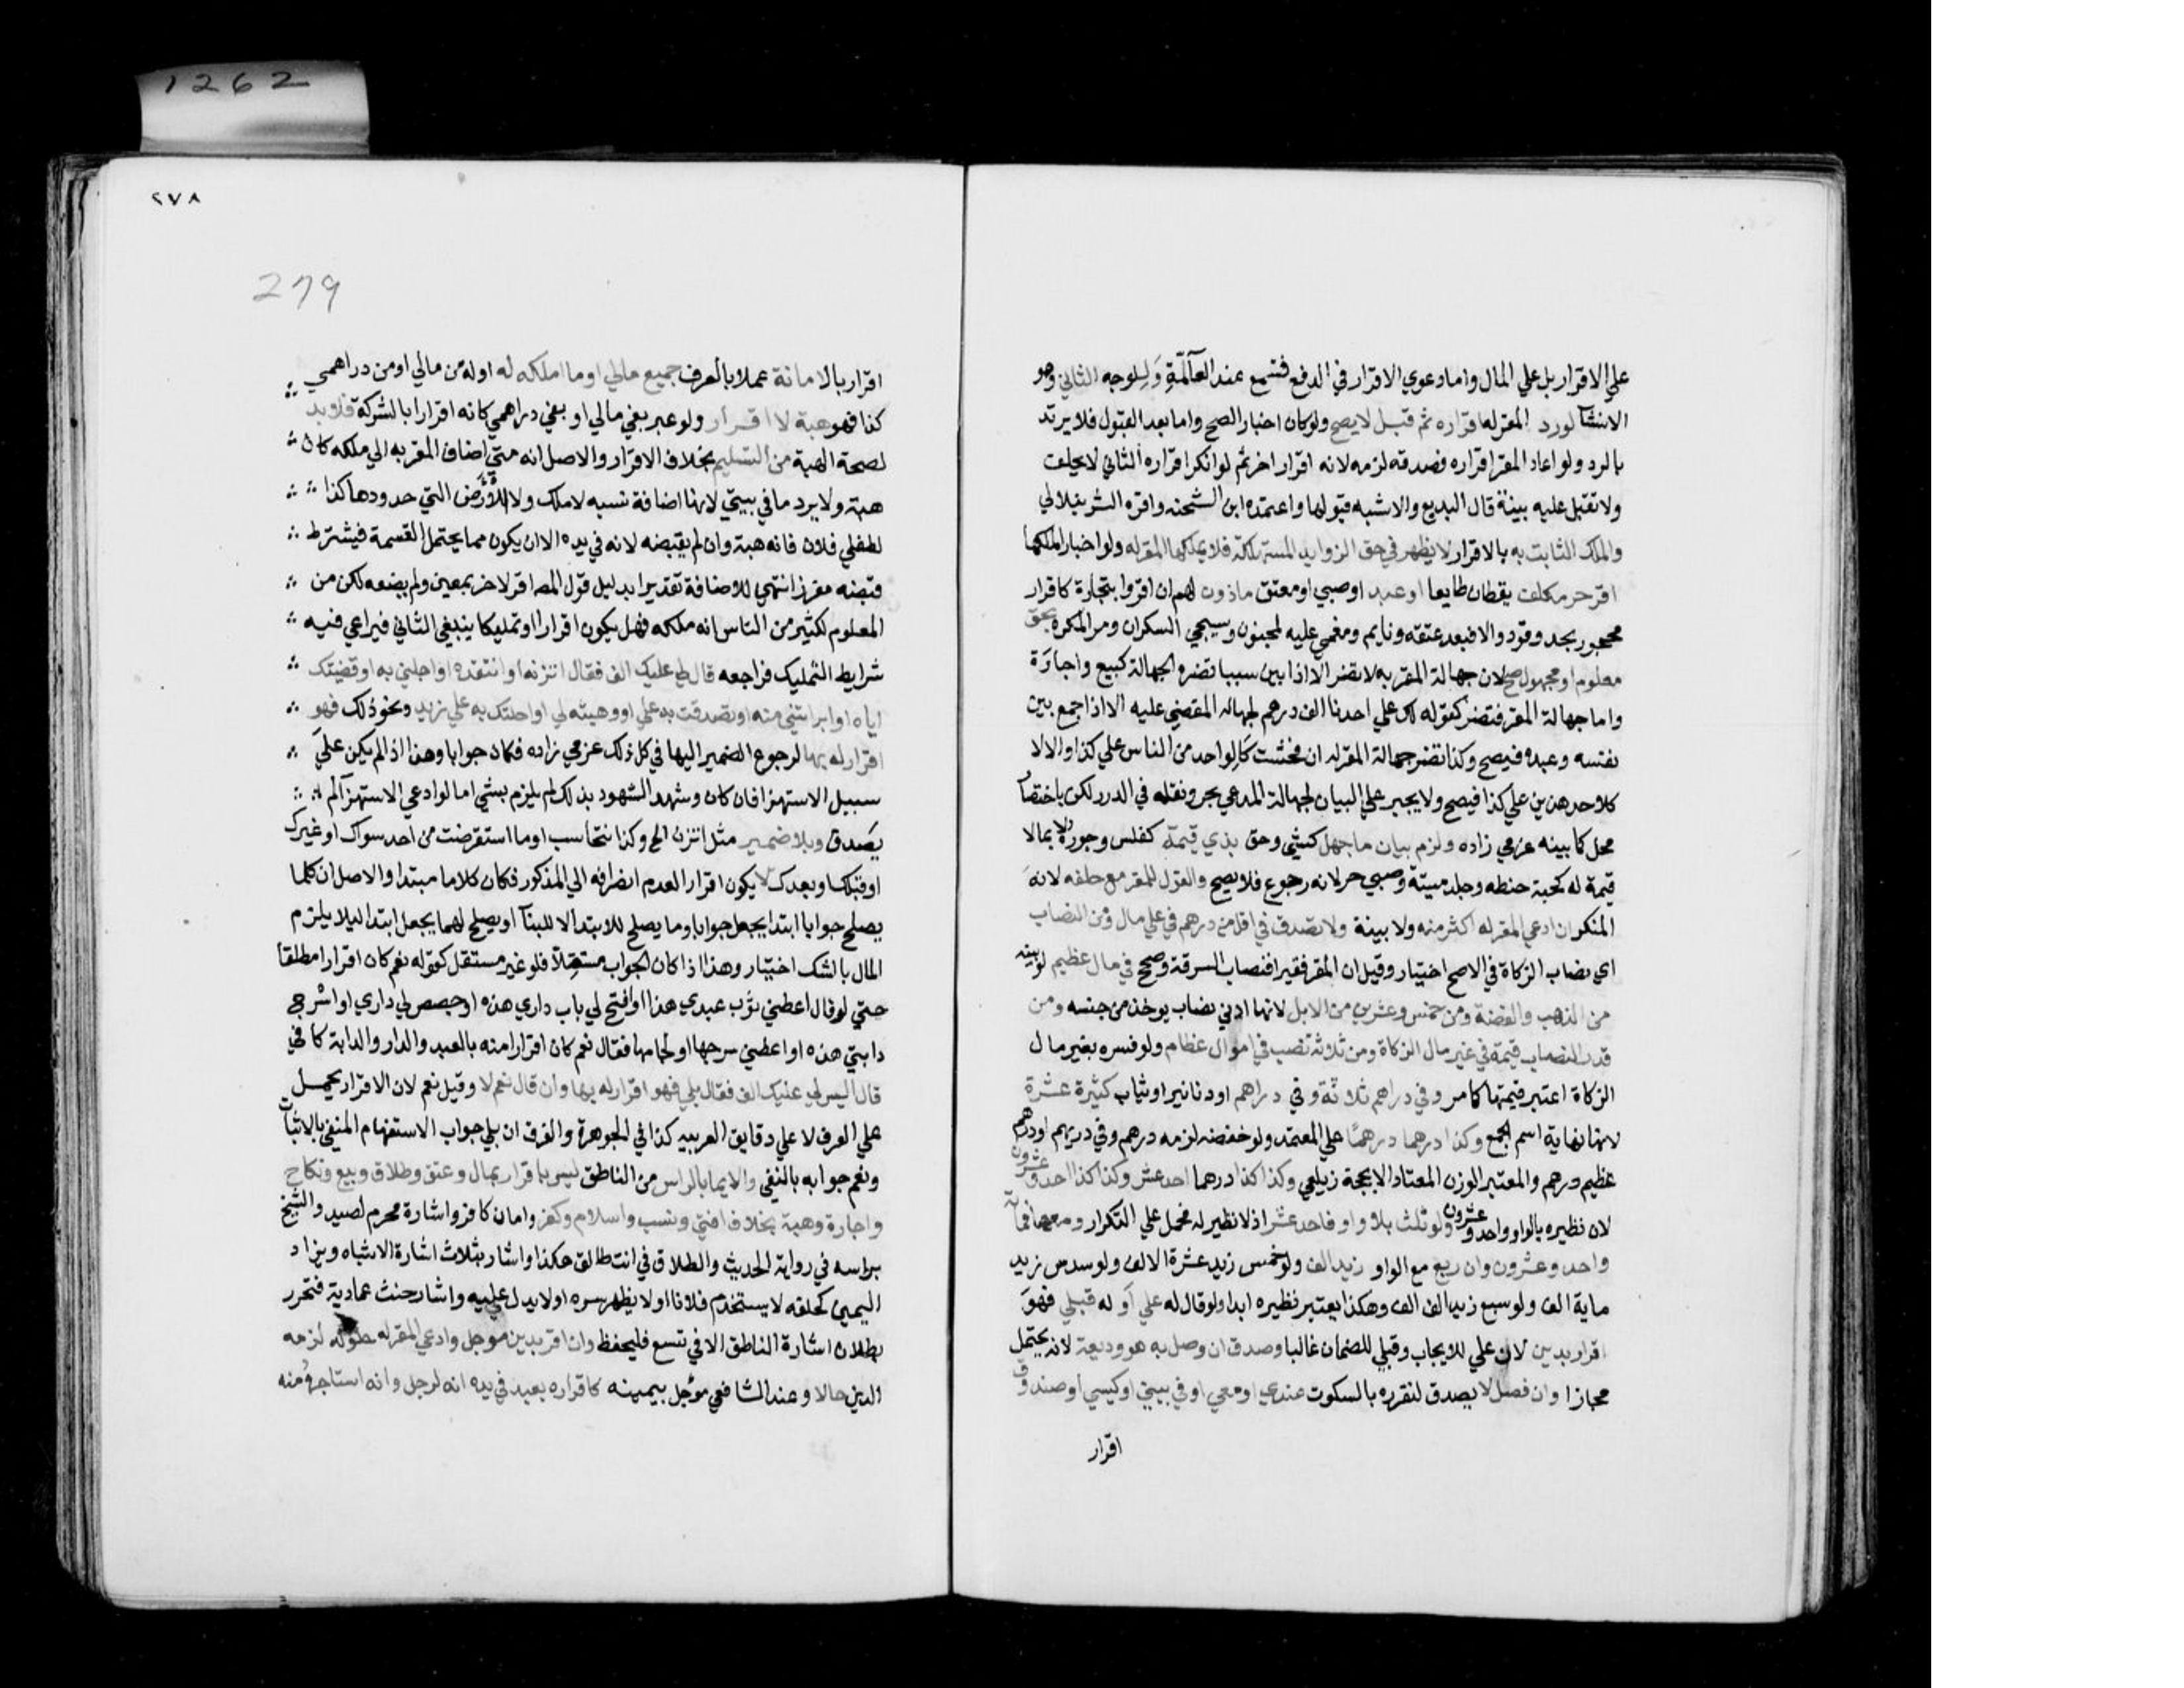 1262
علي الاقرار بل علي المال واما دعوي الاقرار في الدفع فتسمع عند العامة وللوجه الثاني وهو
الانشا لورد المقر له اقراره ثم قبل لا يصح ولو كان اخبار الصح واما بعد القبول فلا يرتد
بالرد ولو اعاد المقر اقراره فصدقه لزمه لانه اقرار اخر ثم لو انكر اقراره الثاني لا يحلف
ولا تقبل عليه بينة قال البديع والاشبه قبولها واعتمده ابن الشحنه واقره الشرنبلالي
والملك الثابت به بالاقرار لا يظهر في حق الزوايد المستهلكة فلا يملكها المقر له ولو اخبار الملكها
اقر حر مكلف يقظان طايعا او عبد او صبي او معتوق ماذون لهم ان اقروا بتجارة كاقرار
محجور بحد وقود والا فبعد عتقه ونايم ومغمي عليه لمجنون وسيجي السكران ومر المكره بحق
معلوم او مجهول صح لان جهالة المقر به لا تضر الا اذا بين سببا تضره الجهالة كبيع واجارة
واما جهالة المقر فتضر كقوله لك علي احدنا الف درهم لجهاله المقضي عليه الا اذا جمع بين
نفسه وعبده فيصح وكذا تضر جهالة المقر له ان فحشت كالواحد من الناس علي كذا والا لا
كلاحد هذين علي كذا فيصح ولا يجبر علي البيان لجهالة المدعي بحر ونقله في الدرر لكن باختصار
محل كما بينه عزمي زاده ولزم بيان ما جهل كشي وحق بذي قيمة كفلس وجوزة لا بمالا
قيمة له كحبة حنطه وجلد ميتة وصبي حر لانه رجوع فلا يصح والقول للمقر مع حلفه لانه
المنكر ان ادعي المقر له اكثر منه ولا بينة ولا يصدق في اقل من درهم في علي مال ومن النصاب
اي نصاب الزكاة في الاصح اختيار وقيل ان المقر فقيرا فنصاب السرقة وصح في مال عظيم لو بينه
من الذهب والفضة ومن خمس وعشرين من الابل لانها ادني نصاب يوخذ من جنسه ومن
قدر النصاب قيمة في غير مال الزكاة ومن ثلاثة نصب في اموال عظام ولو فسره بغير مال
الزكاة اعتبر قيمتها كامر وفي دراهم ثلاثة وفي دراهم او دنانير او ثياب كثيرة عشرة
لانها نهاية اسم الجمع وكذا درهما درهمًا علي المعتمد ولو خفضه لزمه درهم وفي دريهم او درهم
عظيم درهم والمعتبر الوزن المعتاد الا بحجة زيلعي وكذا كذا درهما احد عشر وكذا كذا احد وعشرون
لان نظيره بالواو واحد وعشرون ولو ثلث بلا واو فاحد عشر اذ لا نظير له فحمل علي التكرار ومعها فماية
واحد وعشرون وان ربع مع الواو زيد الف ولو خمس زيد عشرة الالف ولو سدس زيد
ماية الف ولو سبع زيد الف الف وهكذا يعتبر نظيره ابدا ولو قال له علي او له قبلي فهو
اقرار بدين لان علي للايجاب وقبلي للضمان غالبا وصدق ان وصل به هو وديعة لانه يحتمل
مجازا وان فصل لا يصدق لتقرره بالسكوت عندي او معي او في بيتي او كيسي او صندوق
اقرار
٢٧٨
279
اقرار بالامانة عملا بالعرف جميع مالي او ما املكه له او له من مالي او من دراهمي
كذا فهو هبة لا اقرار ولو عبر بفي مالي او بفي دراهمي كانه اقرارا بالشركة فلا بد
لصحة الهبة من التسليم بخلاف الاقرار والاصل انه متي اضاف المقر به الي ملكه كان
هبة ولا يرد ما في بيتي لانها اضافة نسبه لا ملك ولا الارض التي حدودها كذا
لطفلي فلان فانه هبة وان لم يقبضه لانه في يده الا ان يكون مما يحتمل القسمة فيشترط
قبضه مفرزا انتهي للاضافة تقديرا بدليل قول المص اقر لاخر بمعين ولم يضعه لكن من
المعلوم لكثير من الناس انه ملكه فهل يكون اقرارا او تمليكا ينبغي الثاني فيراعي فيه
شرايط التمليك فراجعه قال لي عليك الف فقال اتزنه او انتقده او اجلني به او قضيتك
اياه او ابراتني منه او تصدقت به علي او وهبته لي او احلتك به علي زيد ونحو ذلك فهو
اقرار له بها لرجوع الضمير اليها في كل ذلك عزمي زاده فكان جوابا وهذا اذا لم يكن علي
سبيل الاستهزا فان كان وشهد الشهود بذلك لم يلزم بشي اما لو ادعي الاستهزا لم
يصدق وبلا ضمير مثل اتزن الح وكذا نتحاسب او ما استقرضت من احد سواك او غيرك
او قبلك او بعدك لا يكون اقرار العدم انصرافه الي المذكور فكان كلاما مبتدا والاصل ان كلما
يصلح جوابا ابتدا يجعل جوابا وما يصلح للابتدا لا للبنا او يصلح لهما يجعل ابتدا ليلا يلزم
المال بالشك اختيار وهذا اذا كان الجواب مستقلا فلو غير مستقل كقوله نعم كان اقرارا مطلقا
حتي لو قال اعطني ثوب عبدي هذا او افتح لي باب داري هذه او جصص لي داري او اسرج
دابتي هذه او اعطني سرجها او لجامها فقال نعم كان اقرارا منه بالعبد والدار والدابة كافي
قال اليس لي عليك الف فقال بلي فهو اقرار له بها وان قال نعم لا وقيل نعم لان الاقرار يحمل
علي العرف لا علي دقايق العربيه كذا في الجوهرة والفرق ان بلي جواب الاستفهام المنفي بالاثبات
ونعم جوابه بالنفي والايما بالراس من الناطق ليس باقرار بمال وعتق وطلاق وبيع ونكاح
واجارة وهبة بخلاف افتي ونسب واسلام وكفر وامان كافر واشارة محرم لصيد والشيخ
براسه في رواية الحديث والطلاق في انت طالق هكذا واشار بثلاث اشارة الاشباه ويزاد
اليمين كحلفه لا يستخدم فلانا او لا يظهر سره او لا يدل عليه واشار حنث عمادية فتحرر
بطلان اشارة الناطق الا في تسع فليحفظ وان اقر بدين موجل وادعي المقر له حلوله لزمه
الدين حالا وعند الشافعي مؤجل بيمينه كاقراره بعبد في يده انه لرجل وانه استاجره منه